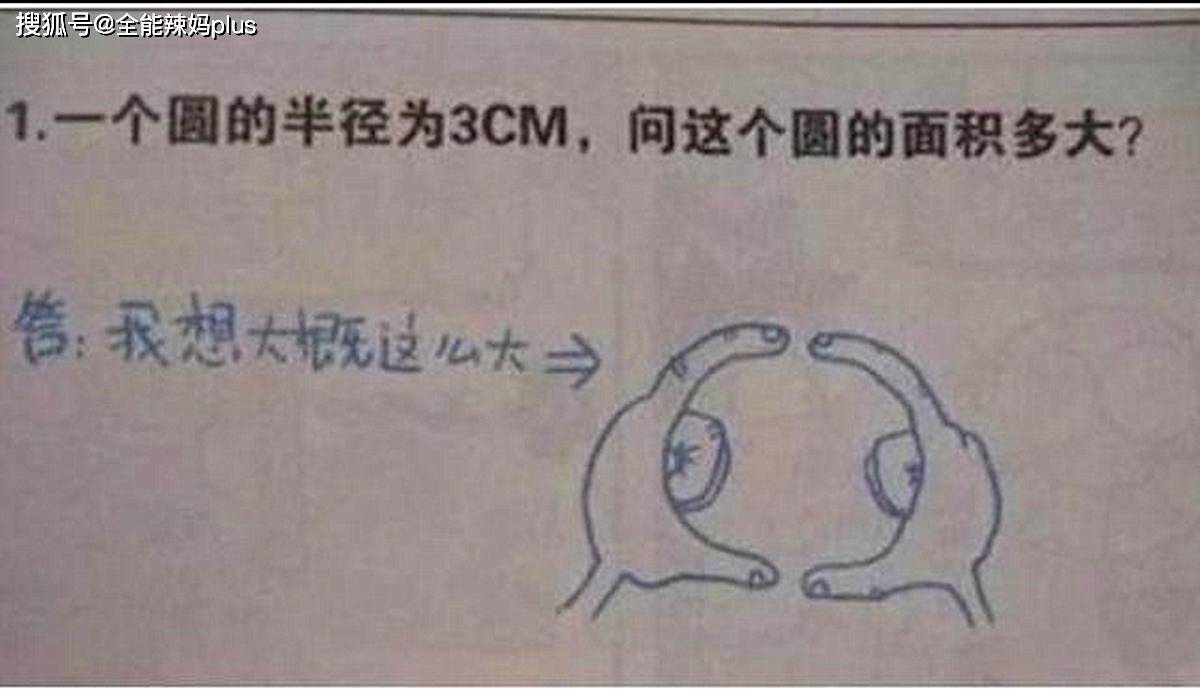 搜狐号@全能辣妈plus
1.一个圆的半径为3CM，问这个圆的面积多大?
答:我想大概这么大⇒